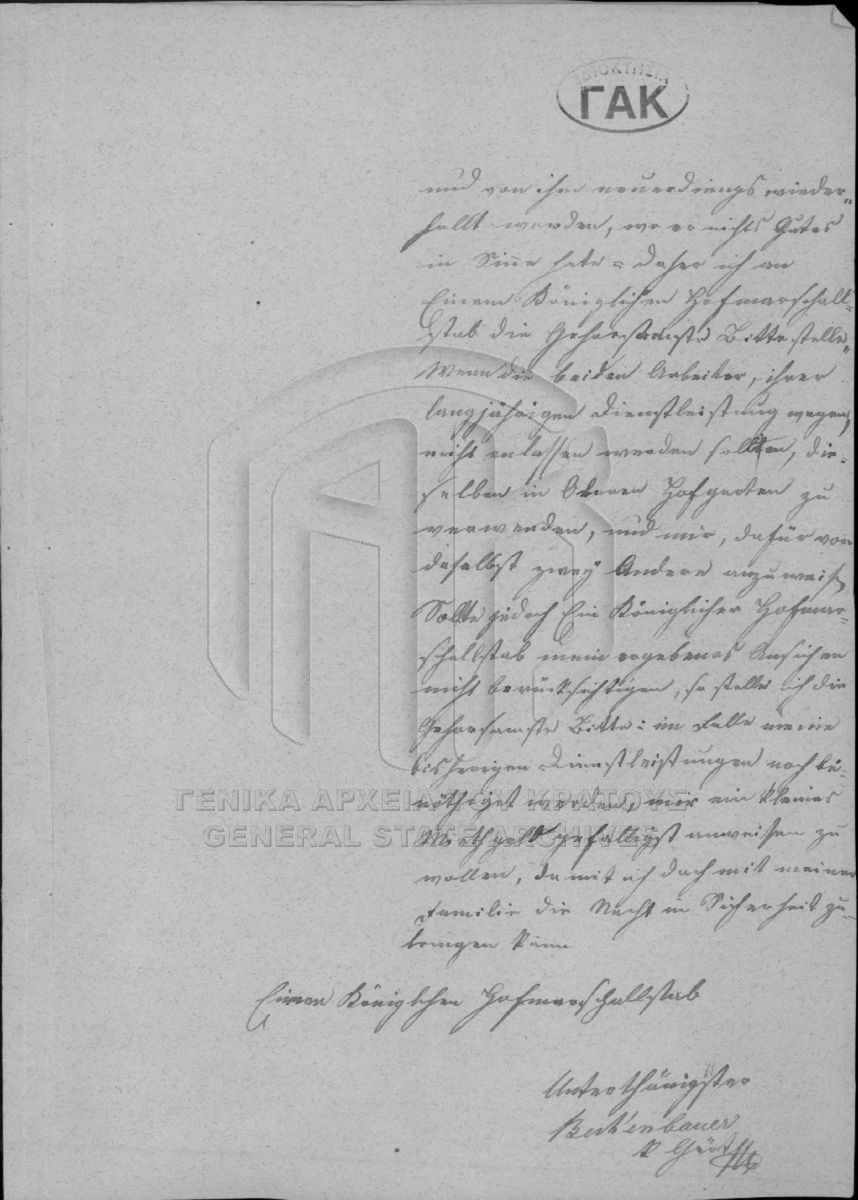 ΓΑΚ
und von ihm neuerdings wieder-
hollt worden, wo er nichts Gutes
in Sinne hate = daher ich an
Einem Königlichen Hofmarschall-
stab die Gehorsamste Bitte stelle,
Wenn die beiden Arbeiter, ihrer
langjährigen Dienstleistung wegen,
nicht enlassen werden sollten, die-
selben in Oberen Hofgarten zu
verwenden, und mir, dafür von
daselbst zwey Andere anzuweisen
Sollte jedoch Ein Königlicher Hofmar-
schallstab mein ergebenes Ansuchen
nicht berücksichtigen, so stelle ich die
Gehorsamste Bitte: im Falle meine
bisherigen Dienstleistungen noch be-
nöthiget werden, mir ein kleines
Miethgeld gefälligst anweisen zu
wollen, damit ich doch mit meiner
Familie die Nacht in Sicherheit zu-
bringen kann
Einen Königlchen Hofmarschallstab
Unterthänigster
ΓΕΝΙΚΑ ΑΡΧΕΙΑ ΤΟΥ ΚΡΑΤΟΥΣ
GENERAL STATE ARCHIVES